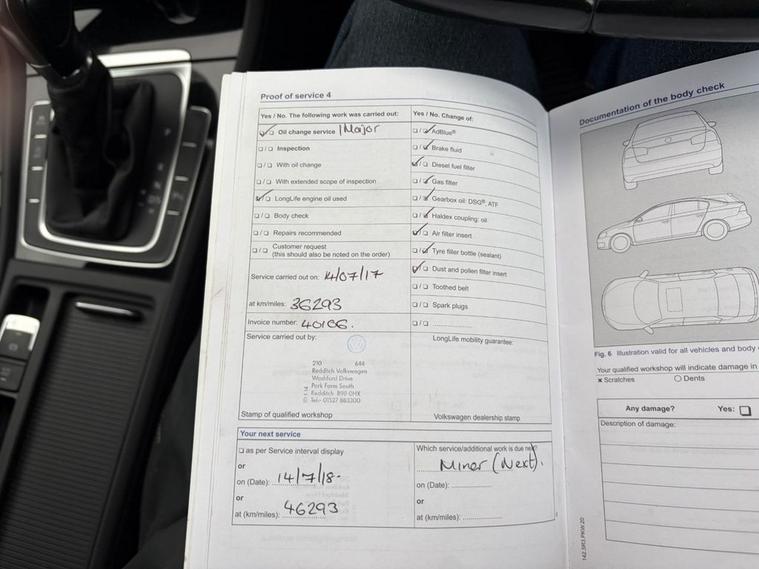 Proof of service 4
Yes / No. The following work was carried out:
Oil change service Major
Inspection
With oil change
With extended scope of inspection
LongLife engine oil used
Body check
Repairs recommended
Customer request
(this should also be noted on the order)
Service carried out on: 14/07/17
at km/miles: 36293
Invoice number:
Service carried out by:
210 644
Redditch Volkswagen
Washford Drive
Park Farm South
Redditch B98 0HX
Tel:- 01527 883300
Stamp of qualified workshop
Yes / No. Change of:
AdBlue®
Brake fluid
Diesel fuel filter
Gas filter
Gearbox oil: DSG®, ATF
Haldex coupling: oil
Air filter insert
Tyre filler bottle (sealant)
Dust and pollen filter insert
Toothed belt
Spark plugs
LongLife mobility guarantee:
Volkswagen dealership stamp
Your next service
as per Service interval display
or
on (Date): 14/7/18-
or
at (km/miles): 46293
Which service/additional work is due
Minor (Next).
on (Date):
or
at (km/miles):
Documentation of the body check
Fig. 6 Illustration valid for all vehicles and body
Your qualified workshop will indicate damage in
x Scratches O Dents
Any damage? Yes:
Description of damage: